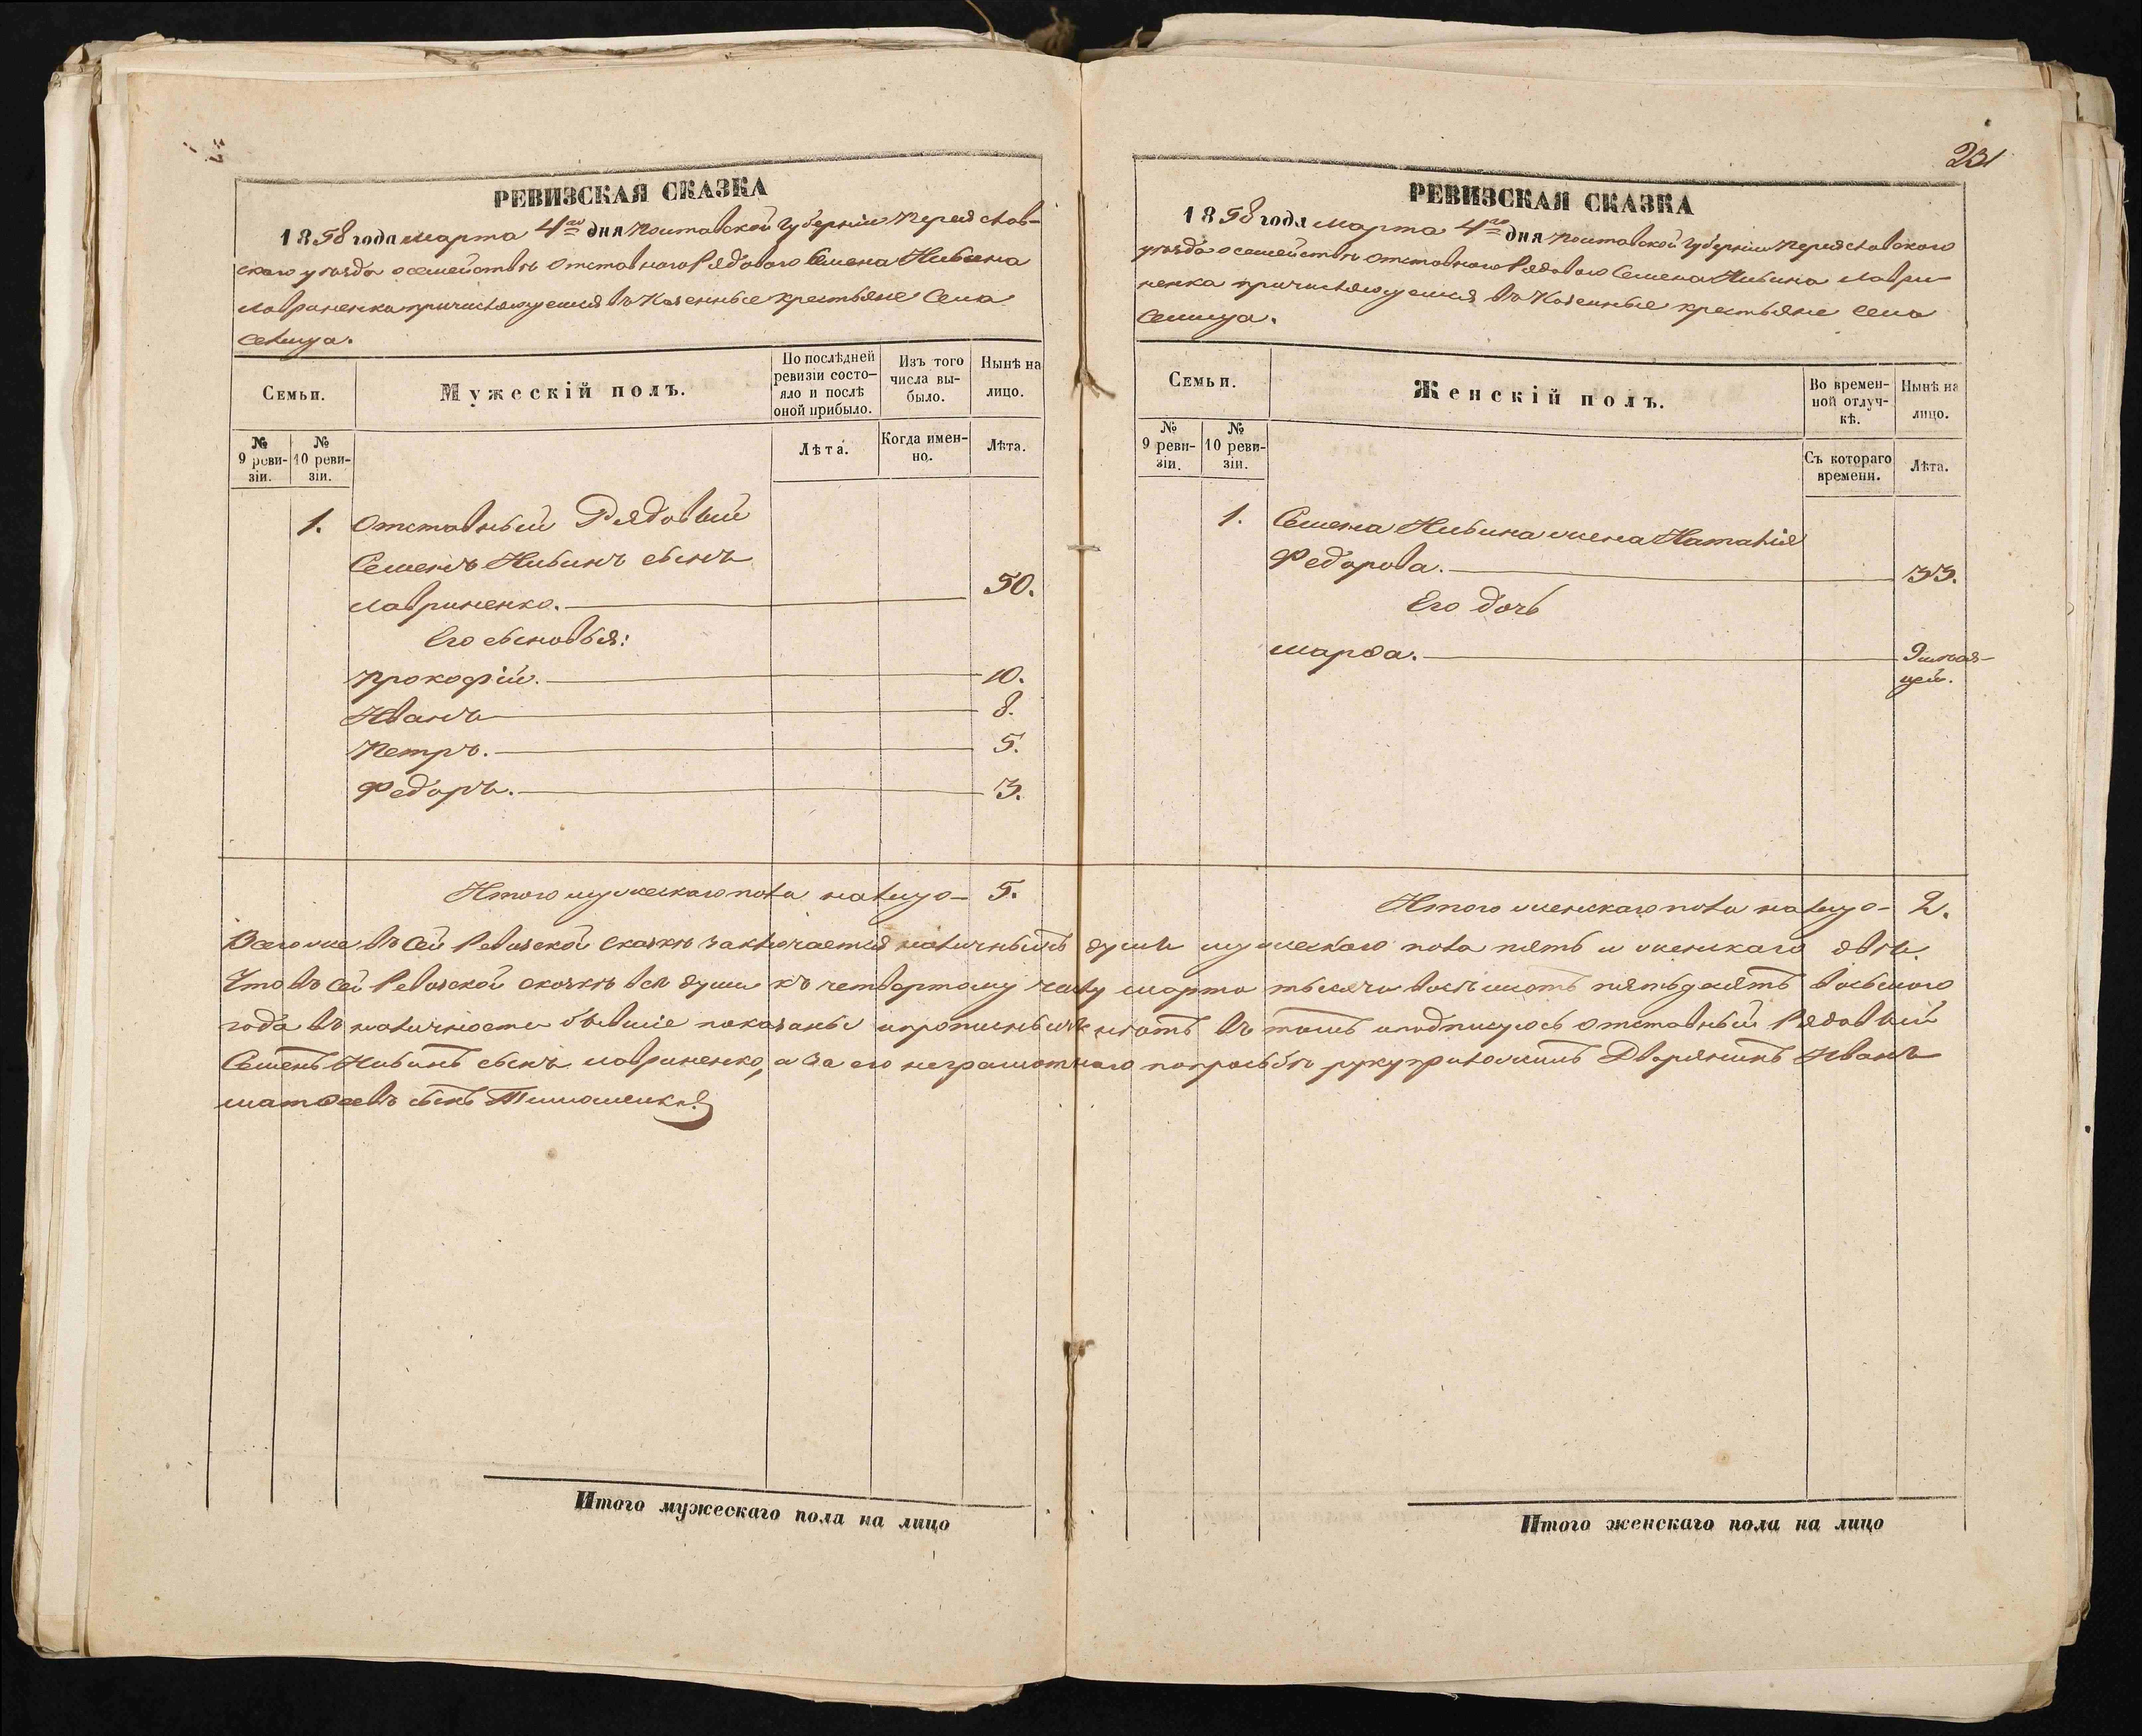 231
РЕВИЗСКАЯ СКАЗКА
1858 года Марта 4го дня Полтавской Губерніи Переяслав-
скаго уѣзда о семействѣ Отставного Рядового Семена
Лавриненка причисляющемся въ Казенные крестьяне Села
Селища.
Семьи.
Мужескій полъ.
По послѣдней ревизіи состо-яло и послѣ оной прибыло.
Изъ того числа вы-было.
Нынѣ на лицо.
№ 9 реви-зіи.
№ 10 реви-зіи.
Лѣта.
Когда имен-но.
Лѣта.
1. Отставный Рядовый
Семенъ сынъ
Лавриненко. 50.
Его сыновья:
Прокофій. 10.
Иванъ 8.
Петръ. 5.
Федоръ. 3.
Итого мужескаго пола налицо 5.
РЕВИЗСКАЯ СКАЗКА
1858 года Марта 4го дня Полтавской Губерніи Переяславского
уѣзда о семействѣ Отставного Рядового Семена Лаври-
ненка причисляющемся въ Казенные крестьяне Села
Селища.
Семьи.
Женскій полъ.
Во времен-ной отлуч-кѣ.
Нынѣ на лицо.
№ 9 реви-зіи.
№ 10 реви-зіи.
Съ котораго времени.
Лѣта.
1. Семена жена Наталія
Федорова. 33.
Его дочь
Марѳа. 9 мѣся-
цей.
Итого женскаго пола налицо 2.
Всего же въ сей Ревизской сказкѣ заключается наличныхъ душъ мужескаго пола пять и женскаго двѣ.
Что въ сей Ревизской сказкѣ всѣ души къ четвертому числу Марта тысяча восемьсотъ пятьдесятъ восьмого
года въ наличности бывшіе показаны и прописныхъ нѣтъ въ томъ и подписуюсь Отставный Рядовый
Семенъ сынъ Лавриненко, а за его неграмотнаго по просьбѣ руку приложилъ Дворянинъ Иванъ
Матвѣевъ сынъ Тимошенко
Итого мужескаго пола на лицо
Итого женскаго пола на лицо